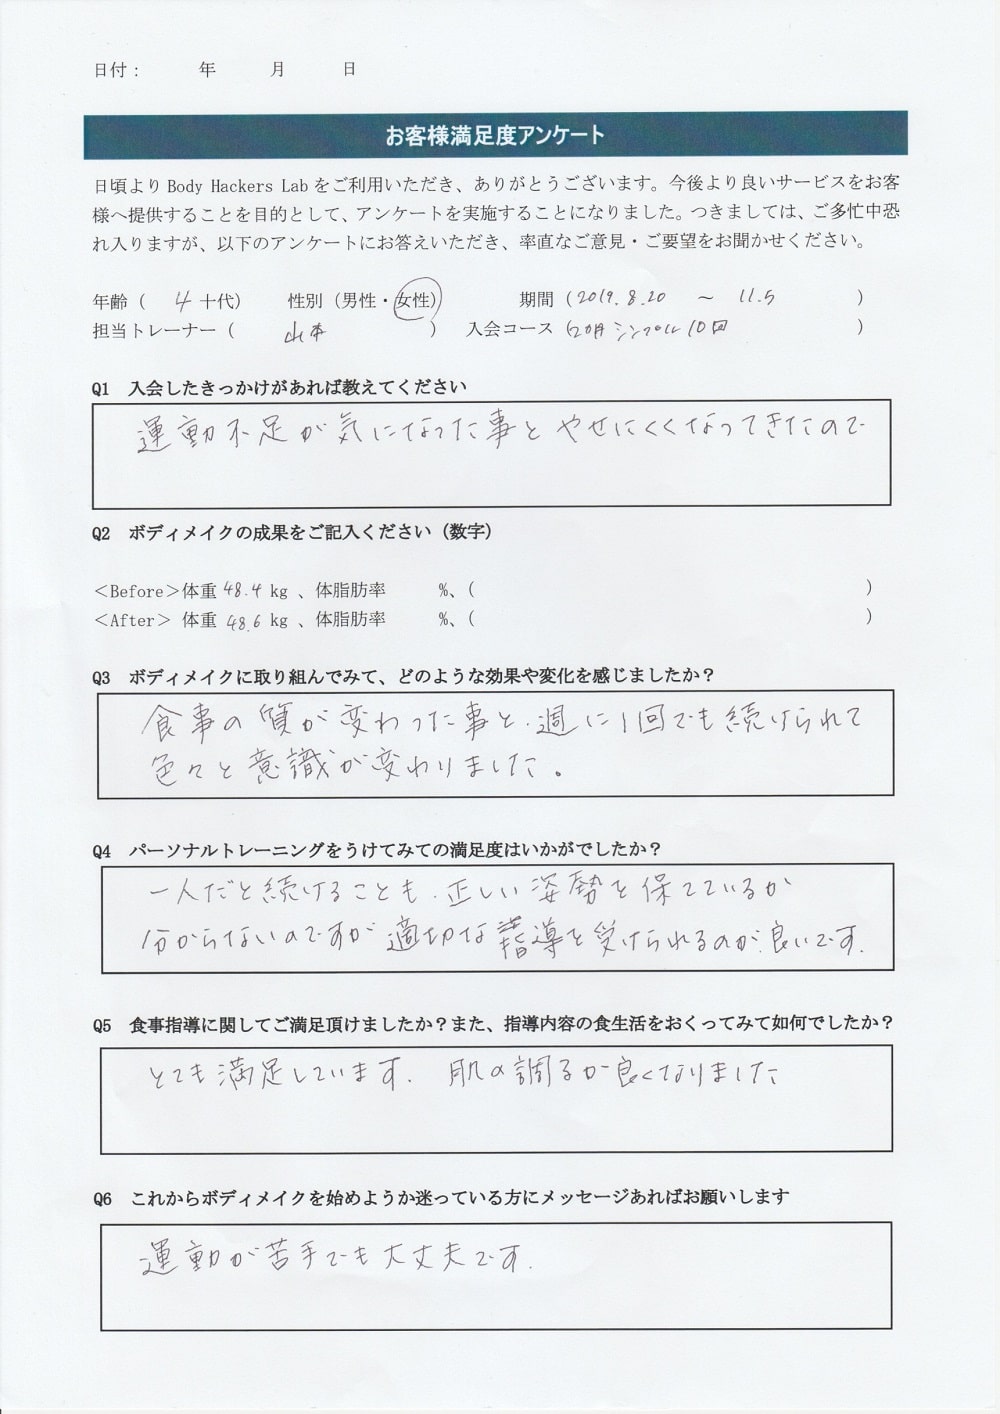 日付： 年 月 日
お客様満足度アンケート
日頃より Body Hackers Lab をご利用いただき、ありがとうございます。今後より良いサービスをお客
様へ提供することを目的として、アンケートを実施することになりました。つきましては、ご多忙中恐
れ入りますが、以下のアンケートにお答えいただき、率直なご意見・ご要望をお聞かせください。
年齢（ 4 十代） 性別（男性・女性） 期間（2019.8.20 ～ 11.5 ）
担当トレーナー（ 山本 ） 入会コース（2カ月シンプル10回 ）
Q1 入会したきっかけがあれば教えてください
運動不足が気になった事と やせにくくなってきたので
Q2 ボディメイクの成果をご記入ください（数字）
＜Before＞体重 48.4 kg 、体脂肪率 %、（ ）
＜After＞ 体重 48.6 kg 、体脂肪率 %、（ ）
Q3 ボディメイクに取り組んでみて、どのような効果や変化を感じましたか？
食事の質が変わった事と、週に1回でも続けられて
色々と意識が変わりました。
Q4 パーソナルトレーニングをうけてみての満足度はいかがでしたか？
一人だと続けることも、正しい姿勢を保てているか
分からないのですが適切な指導を受けられるのが良いです．
Q5 食事指導に関してご満足頂けましたか？また、指導内容の食生活をおくってみて如何でしたか？
とても満足しています． 肌の調子が良くなりました
Q6 これからボディメイクを始めようか迷っている方にメッセージあればお願いします
運動が苦手でも大丈夫です．